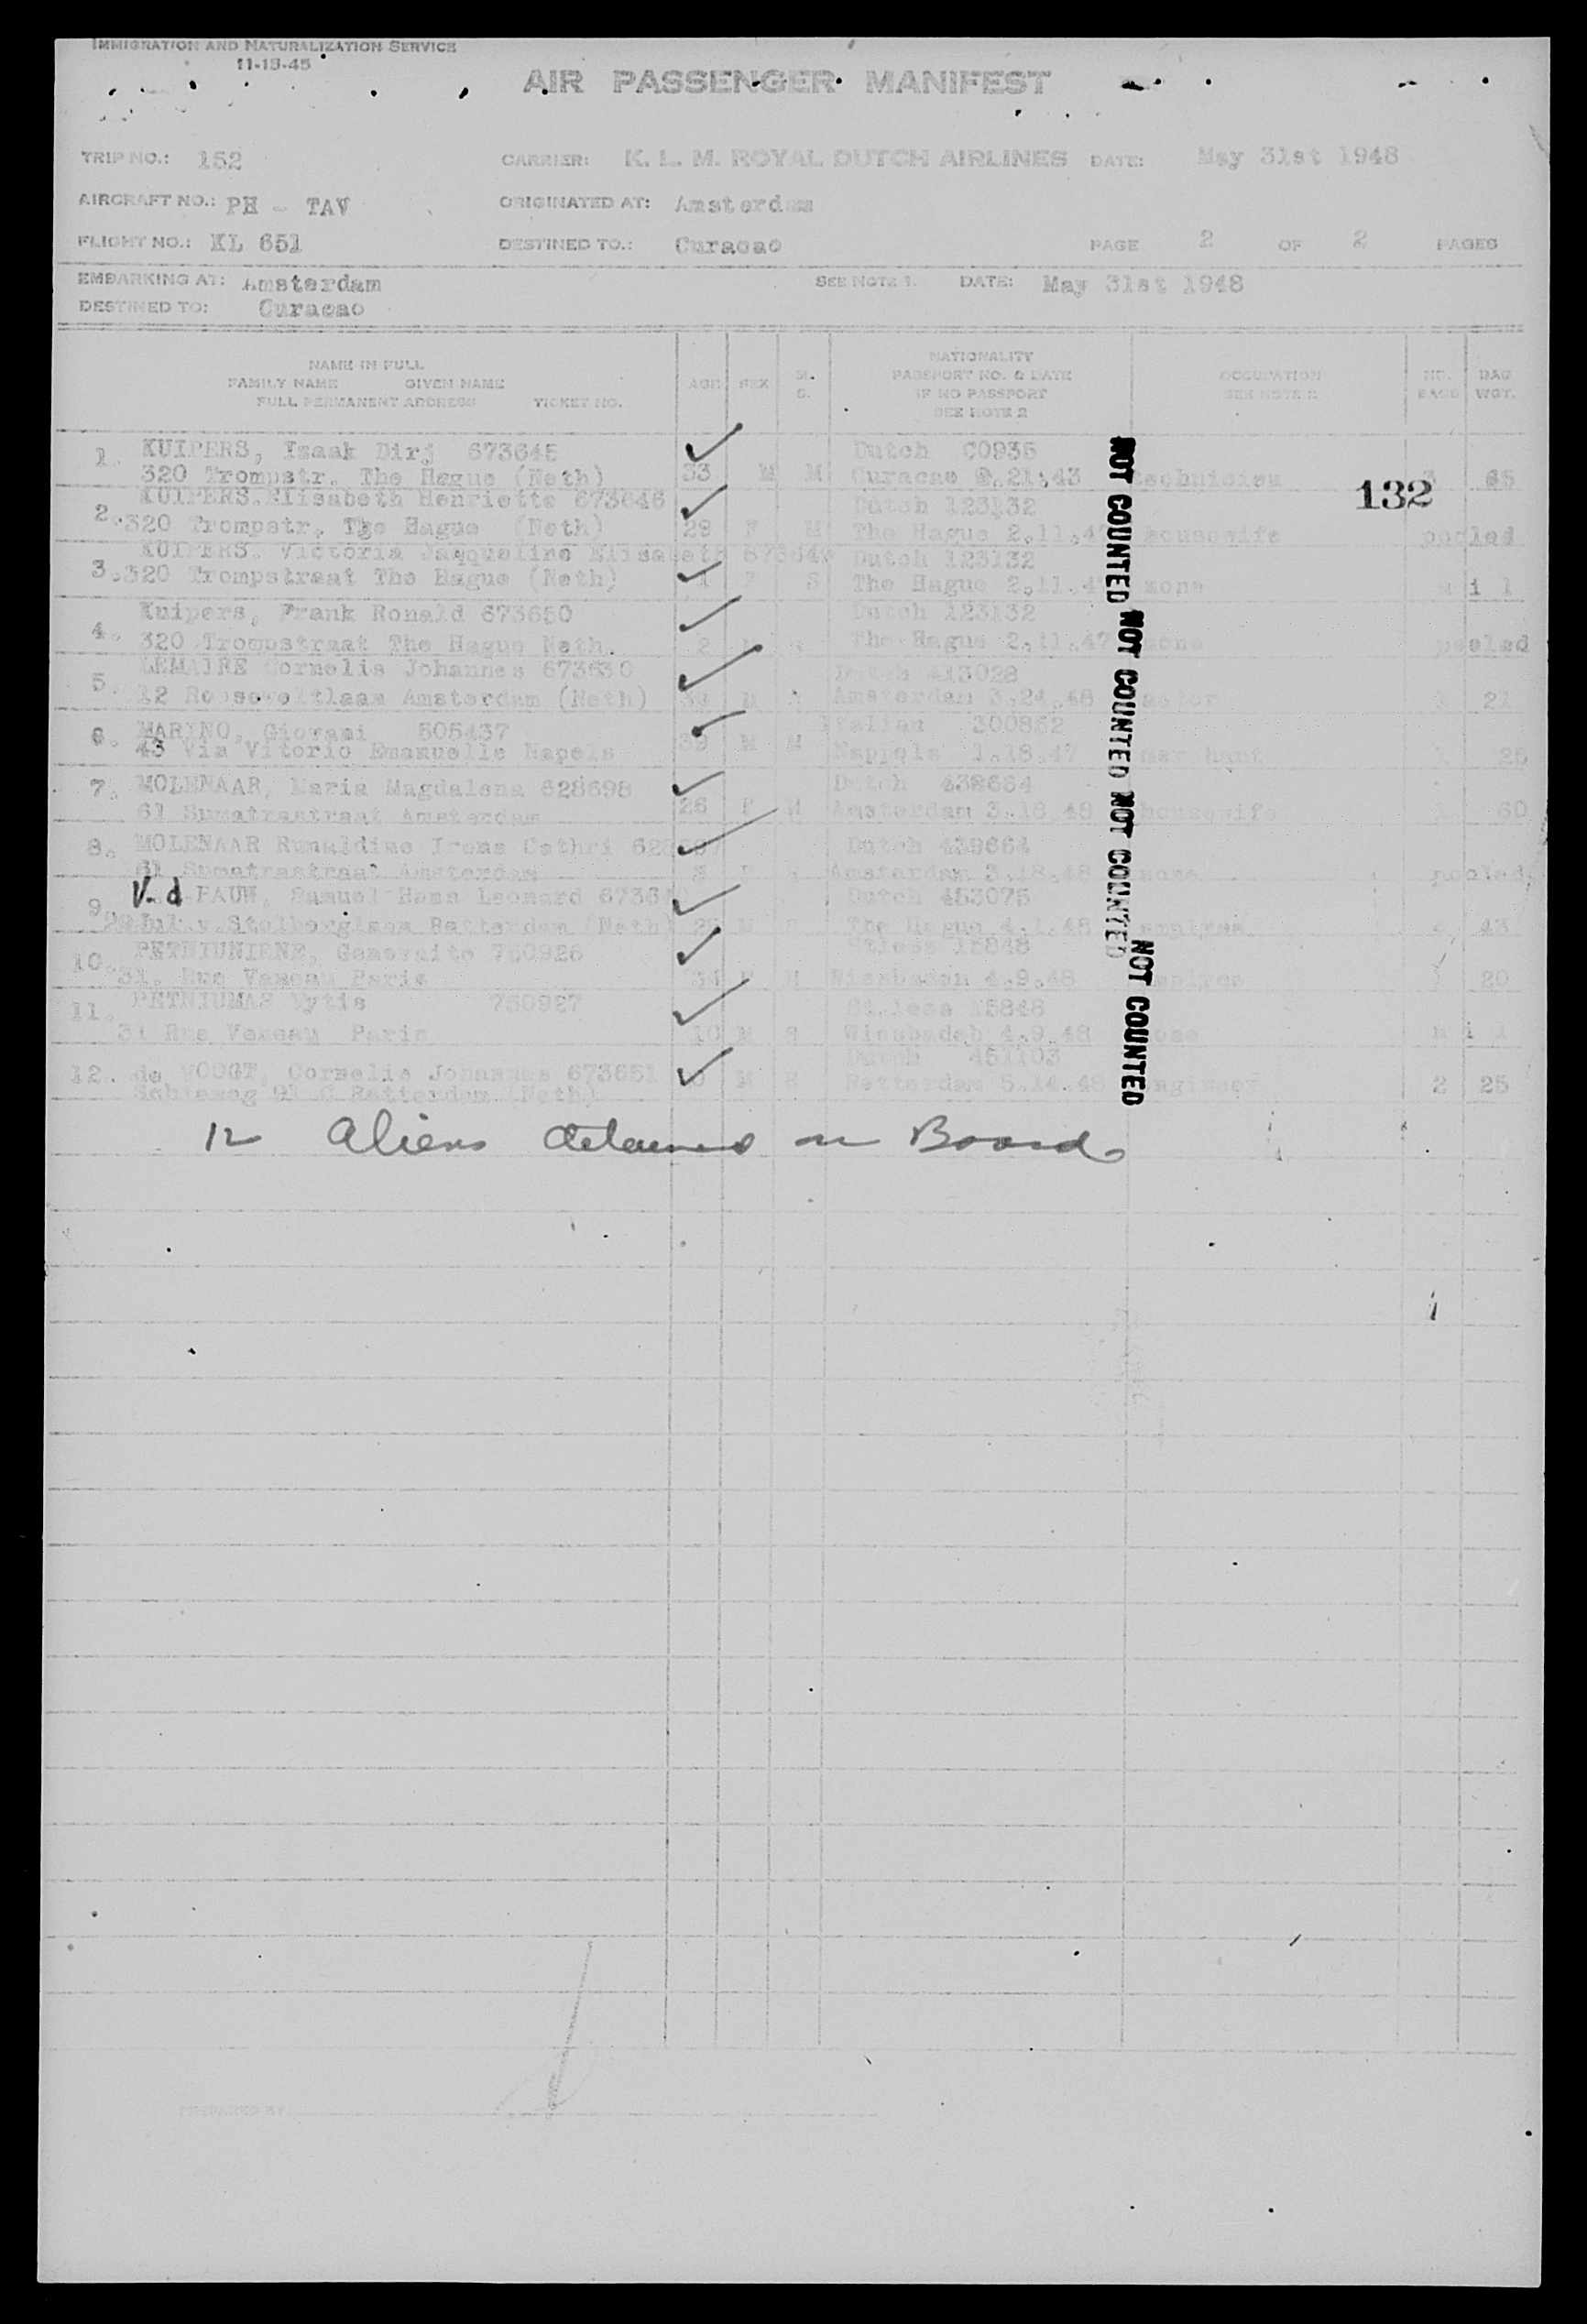 IMMIGRATION AND NATURALIZATION SERVICE
11-15-45
AIR PASSENGER MANIFEST
TRIP NO.: 152 CARRIER: K. L. M. ROYAL DUTCH AIRLINES DATE: May 31st 1948
AIRCRAFT NO.: PH - TAV ORIGINATED AT: Amsterdam
FLIGHT NO.: KL 651 DESTINED TO.: Curacao PAGE 2 OF 2 PAGES
EMBARKING AT: Amsterdam SEE NOTE 1. DATE: May 31st 1948
DESTINED TO: Curacao
NAME IN FULL
FAMILY NAME GIVEN NAME
FULL PERMANENT ADDRESS TICKET NO.
AGE SEX M. S.
NATIONALITY
PASSPORT NO. & DATE
IF NO PASSPORT
SEE NOTE 2
OCCUPATION
SEE NOTE 2
NO. BAGS
BAG WGT.
1. KUIPERS, Isaak Dirj 673645 Dutch C0935
320 Trompstr. The Hague (Neth) 33 M M Curacao 21.43 technician 65
132
2. KUIPERS. Elisabeth Henriette 673646 Dutch 123132
320 Trompstr. The Hague (Neth) 29 F M The Hague 2.11.47 housewife pooled
3. KUIPERS. Victoria Jacqueline Elisabeth Dutch 123132
320 Trompstraat The Hague (Neth) 1 F S The Hague 2.11.47 none n i l
4. Kuipers, Frank Ronald 673650 Dutch 123132
320 Trompstraat The Hague Neth. 2 The Hague 2.11.47 none pooled
5. LEMAIRE Cornelis Johannes 673630 Dutch 413028
12 Rooseveltlaan Amsterdam (Neth) Amsterdam 3.24.48 21
6. MARINO, Giovani 505437 Italian 300862
43 Via Vitorio Emanuelle Napels 39 M M 1.18.47 merchant 25
7. MOLENAAR, Maria Magdalena 628698 Dutch
61 Sumatrastraat Amsterdam 26 F M Amsterdam 3.18.48 housewife 60
8. MOLENAAR Irene Dutch 439664
61 Sumatrastraat Amsterdam Amsterdam 3.18.48 none pooled
9. V. d PAUW, Samuel Hans Leonard Dutch 453075
Jul. v. Stolberglaan Rotterdam (Neth) The Hague 4.1.48 43
10. PETNIUNIENE, 750926 Stless 15848
31. Rue Paris 34 F M Wiesbaden 4.9.48 20
11. PETNIUMAS Vytis 750927 St.less 15848
31 Rue Paris 10 M S Wiesbaden 4.9.48 none n i l
12. de VOOGT, Cornelis Johannes 673651 Dutch 451103
Schieweg Rotterdam (Neth) Rotterdam 5.14.48 engineer 2 25
NOT COUNTED NOT COUNTED NOT COUNTED NOT COUNTED
12 Aliens detained on Board
PREPARED BY